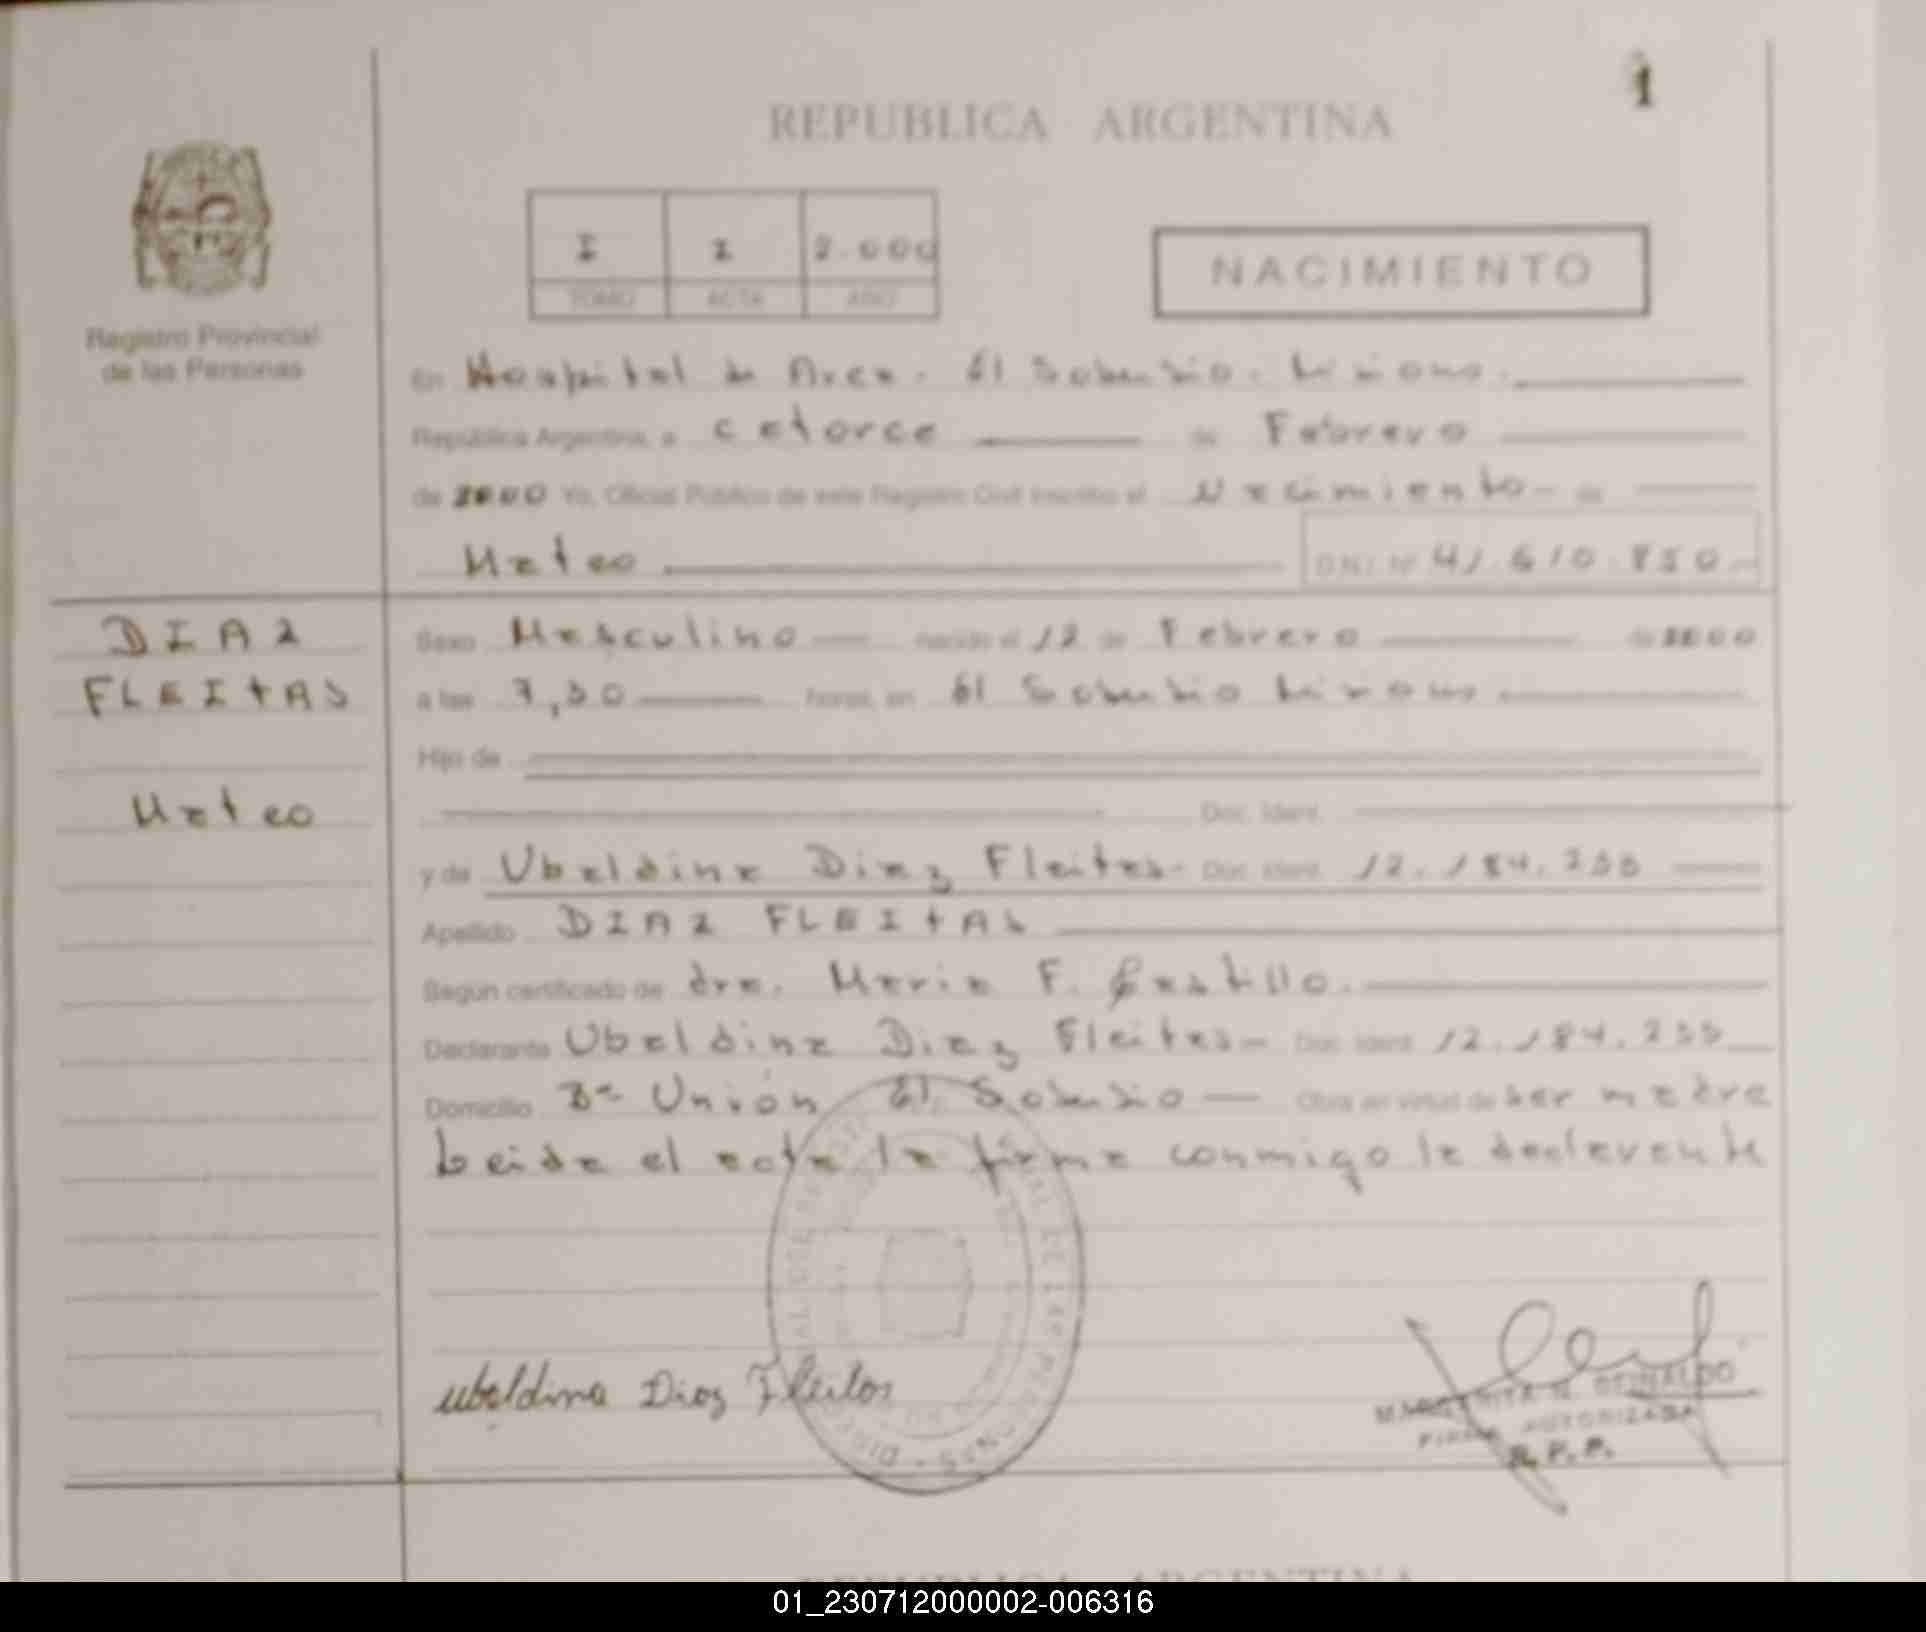 1
REPUBLICA ARGENTINA
I I 2.000
TOMO ACTA AÑO
NACIMIENTO
Registro Provincial
de las Personas
En Hospital de Area. El Soberbio. Misiones.
República Argentina, a catorce de Febrero
de 2000 Yo, Oficial Público de este Registro Civil inscribo el Nacimiento de
Mateo D.N.I. Nº 41.610.850
DIAZ
FLEITAS
Mateo
Sexo Masculino nacido el 12 de Febrero de 2000
a las 7,30 horas, en El Soberbio Misiones
Hijo de
Doc. Ident.
y de Ubaldina Diaz Fleitas Doc. Ident. 12.184.
Apellido DIAZ FLEITAS
Según certificado de dra. Maria F. Castillo.
Declarante Ubaldina Diaz Fleitas Doc. Ident. 12.184.
Domicilio Unión El Soberbio Obra en virtud de ser madre
Leida el acta la firma conmigo la declarante
ubaldina Diaz Fleitas
FIRMA AUTORIZADA
R.P.P.
REPUBLICA ARGENTINA
01_230712000002-006316